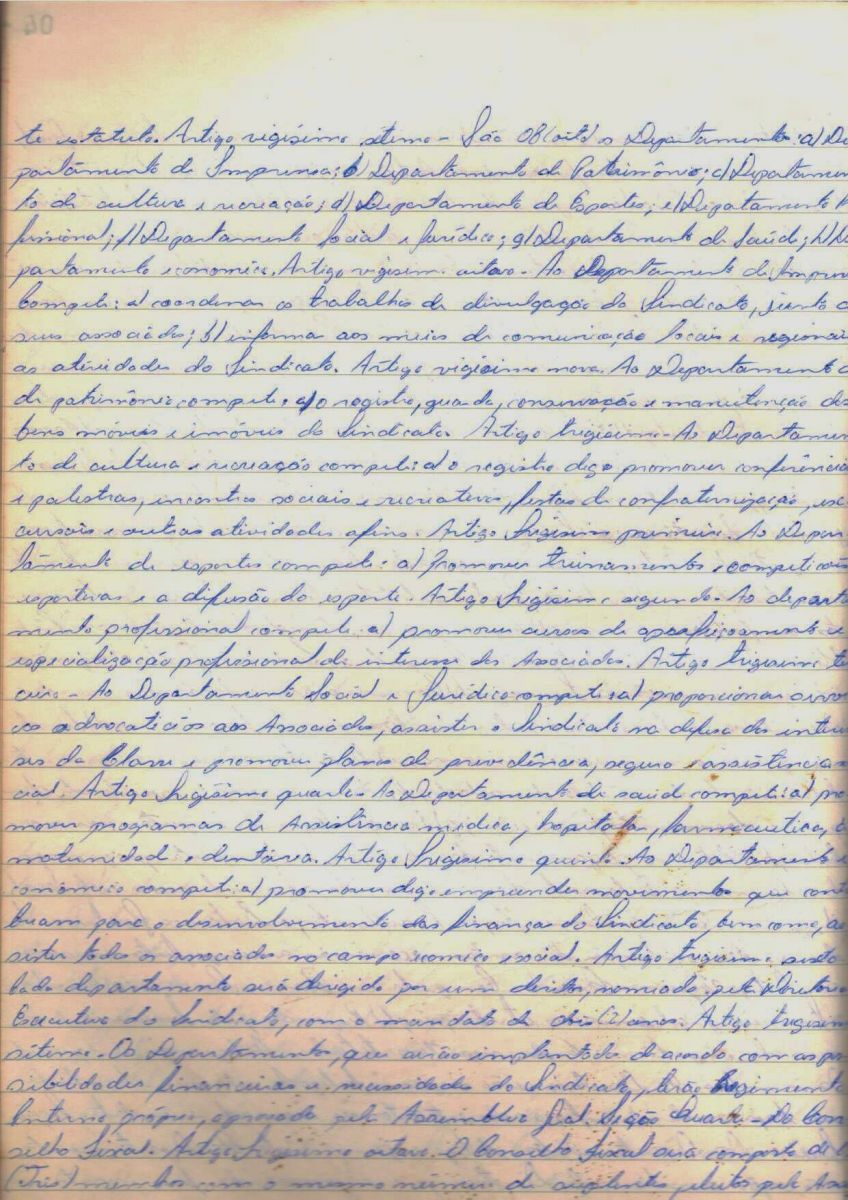 te estatuto. Artigo vigésimo sétimo - São 08 (oito) os Departamentos: a) De
partamento de Imprensa; b) Departamento de Patrimônio; c) Departamen
to de cultura e recreação; d) Departamento de Esportes; e) Departamento
fissional; f) Departamento Social e Jurídico; g) Departamento de Saúde; h) De
partamento economico. Artigo vigésimo oitavo - Ao Departamento de Impren
Compete: a) coordenar os trabalhos de divulgação do Sindicato, junto a
seus associados; b) informa aos meios de comunicação locais e regionais
as atividades do Sindicato. Artigo vigésimo nono. Ao Departamento
de patrimônio compete: a) o registro, guarda, conservação e manutenção dos
bens móveis e imóveis do Sindicato. Artigo trigésimo - Ao Departamen
to de cultura e recreação compete: a) o registro digo promover conferências
e palestras, encontros sociais e recreativos, festas de confraternização, ex
cursões e outras atividades afins. Artigo trigésimo primeiro. Ao Depar
tamento de esportes compete: a) Promover treinamentos e competições
esportivas e a difusão do esporte. Artigo trigésimo segundo. Ao departa
mento profissional compete: a) promover cursos de aperfeiçoamento e
especialização profissional de interesse dos Associados. Artigo trigésimo te
ceiro - Ao Departamento Social e Jurídico compete: a) proporcionar
os advocatícios aos Associados, assistir o Sindicato na defesa dos interes
ses da Classe e promover planos de previdência, seguro e assistência so
cial. Artigo trigésimo quarto - Ao Departamento de saúde compete: a) pro
mover programas de Assistência médica, hospitalar, farmaceutica,
maternidade e dentária. Artigo trigésimo quinto. Ao Departamento e
conômico compete: a) promover digo empreender movimentos que contri
buam para o desenvolvimento das finanças do Sindicato, bem como, as
sistir todos os associados no campo economico e social. Artigo trigésimo sexto
Cada departamento será dirigido por um diretor, nomeado pela Diretoria
Executiva do Sindicato, com o mandato de dois (2) anos. Artigo trigésimo
sétimo. Os Departamentos, que serão implantados de acordo com as pos
sibilidades financeiras e necessidades do Sindicato, terão Regimento
Interno próprio, aprovado pela Assembleia Geral. Seção Quarta - Do Con
selho Fiscal. Artigo trigésimo oitavo. O Conselho Fiscal será composto de
(Três) membros com o mesmo número de suplentes, eleitos pela Ass